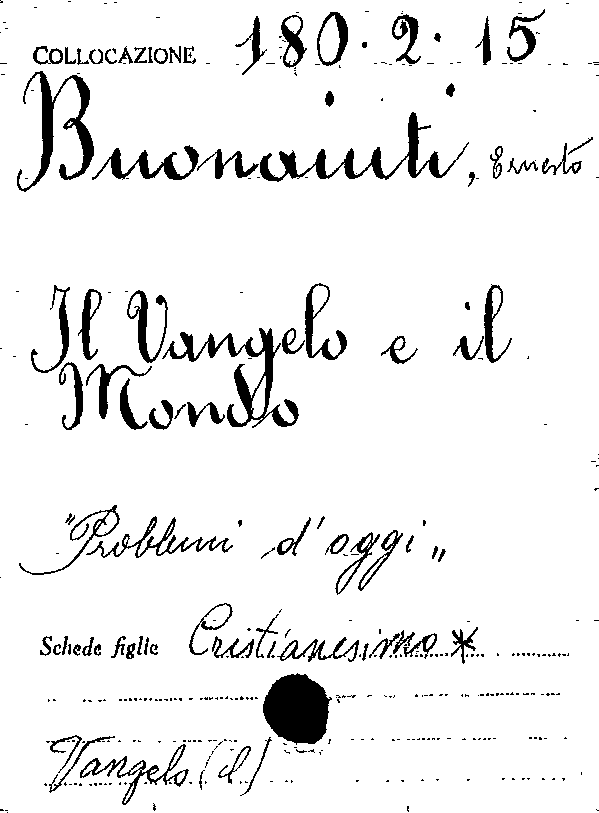 COLLOCAZIONE 180.2.15
Buonaiuti, Ernesto
Il Vangelo e il
Mondo
"Problemi d'oggi„
Schede figlie Cristianesimo *
Vangelo (il)